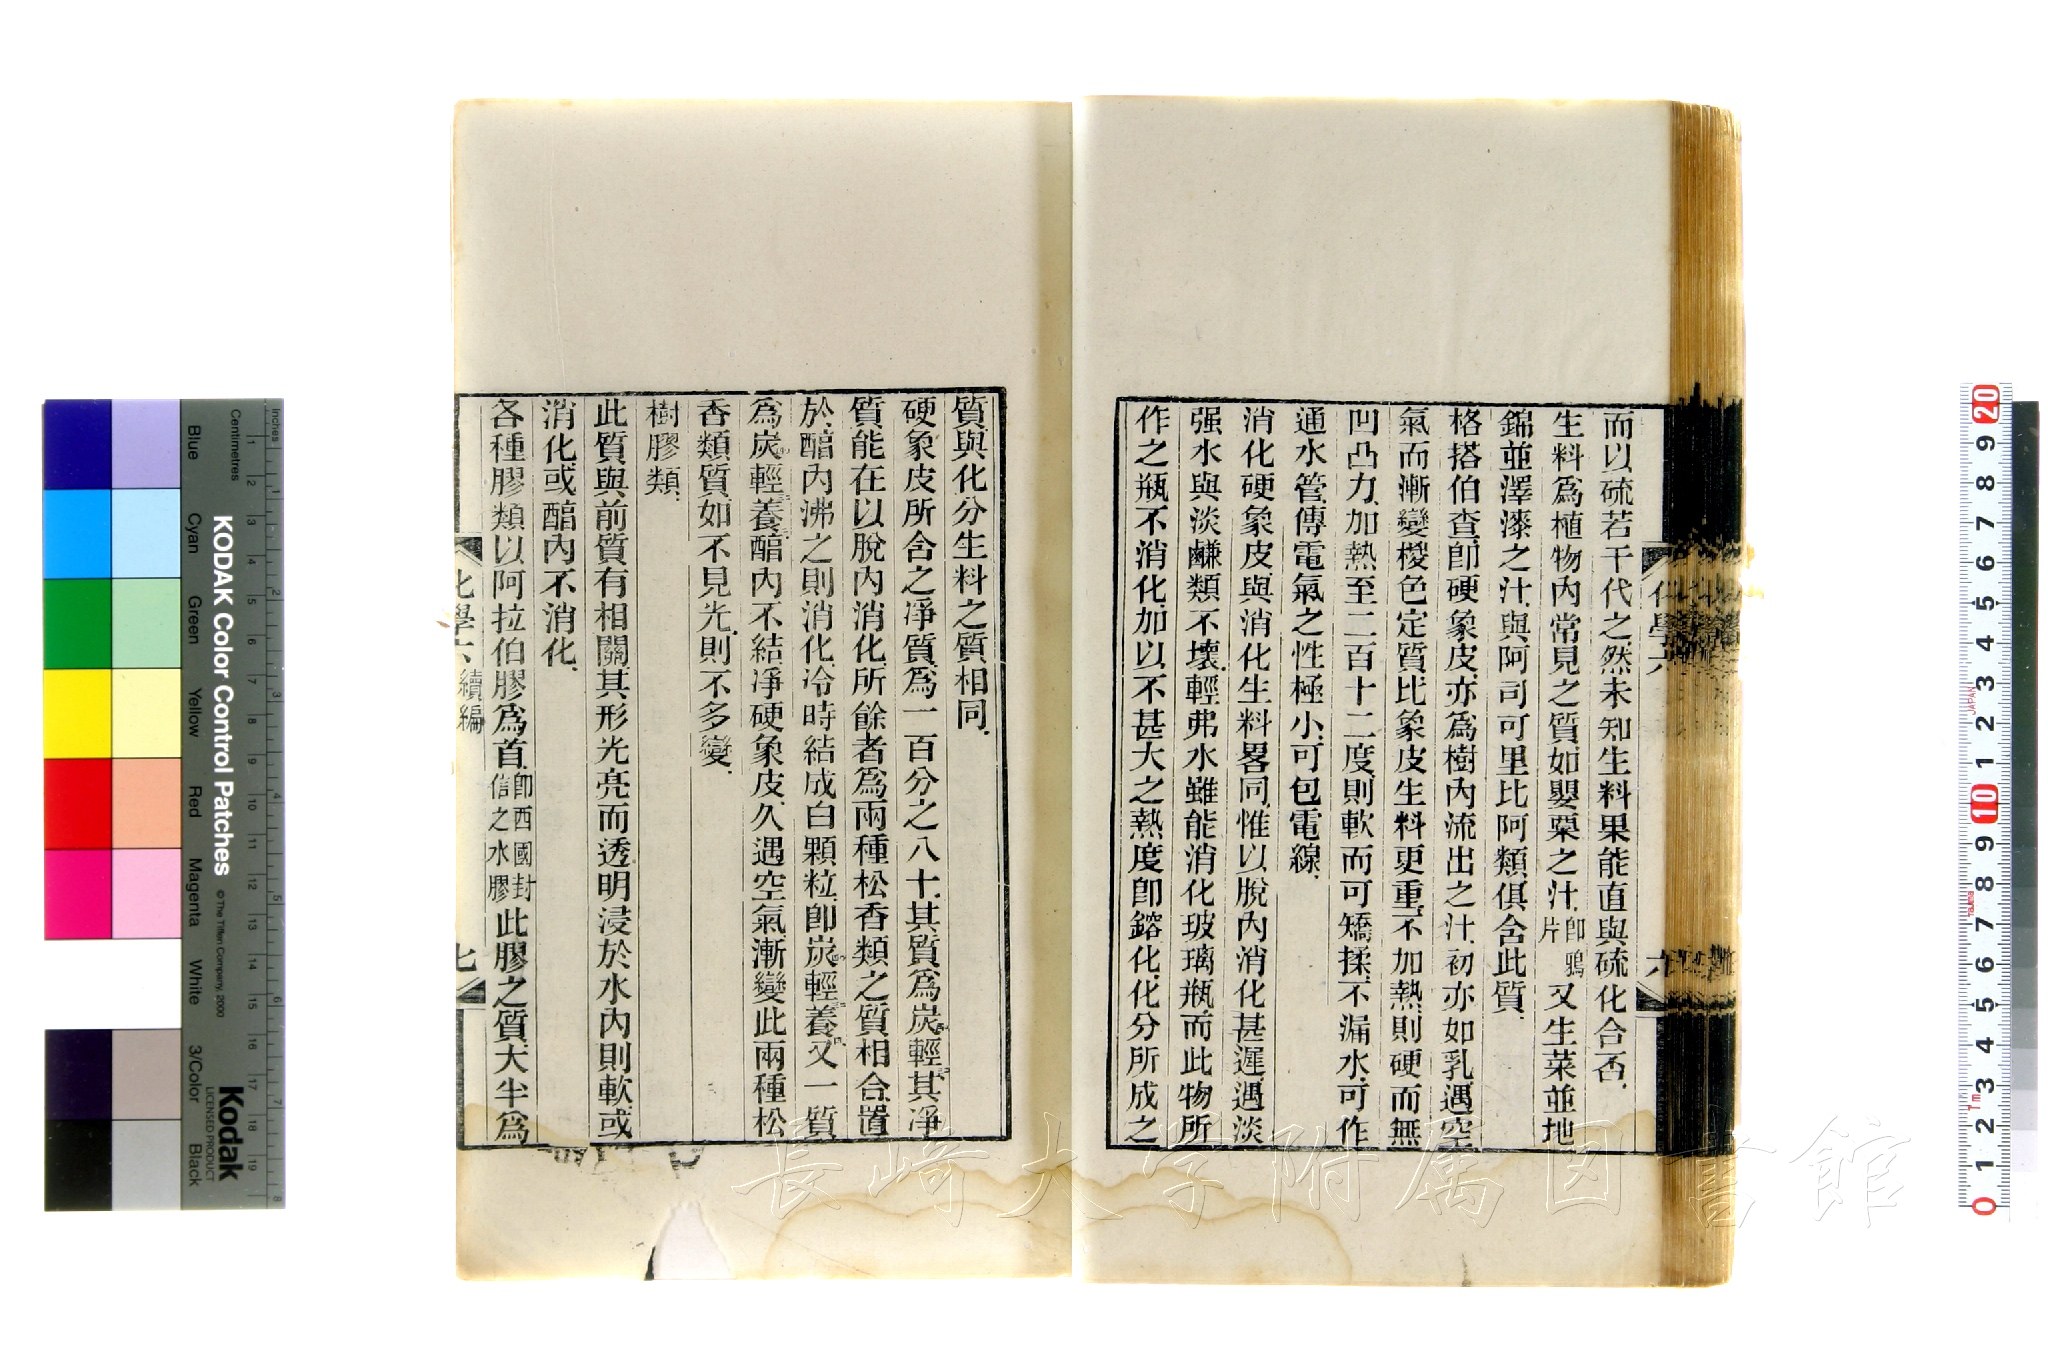 而以硫若干代之然未知生料果能直與硫化合否
生料爲植物內常見之質如罌粟之汁卽鴉片又生菜並地
錦並澤漆之汁與阿司可里比阿類俱含此質
格搭伯查卽硬象皮亦爲樹內流出之汁初亦如乳遇空
氣而漸變椶色定質比象皮生料更重不加熱則硬而無
凹凸力加熱至二百十二度則軟而可矯揉不漏水可作
通水管傳電氣之性極小可包電線
消化硬象皮與消化生料畧同惟以脫內消化甚遲遇淡
强水與淡鹻類不壞輕弗水雖能消化玻璃瓶而此物所
作之瓶不消化加以不甚大之熱度卽鎔化化分所成之
化學六
六
質與化分生料之質相同
硬象皮所含之淨質爲一百分之八十其質爲炭輕其淨
質能在以脫內消化所餘者爲兩種松香類之質相合置
於醕內沸之則消化冷時結成白顆粒卽炭輕養又一質
爲炭輕養醕內不結淨硬象皮久遇空氣漸變此兩種松
香類質如不見光則不多變
樹膠類
此質與前質有相關其形光亮而透明浸於水內則軟或
消化或醕內不消化
各種膠類以阿拉伯膠爲首卽西國封信之水膠此膠之質大半爲
化學六 續編
七
長崎大学附属図書館
KODAK Color Control Patches
© The Tiffen Company, 2000
Kodak
LICENSED PRODUCT
Inches
Centimetres
Blue
Cyan
Green
Yellow
Red
Magenta
White
3/Color
Black
1 2 3 4 5 6 7 8 9 10 11 12 13 14 15 16 17 18 19
1 2 3 4 5 6 7 8
0 1 2 3 4 5 6 7 8 9 10 1 2 3 4 5 6 7 8 9 20
JAPAN